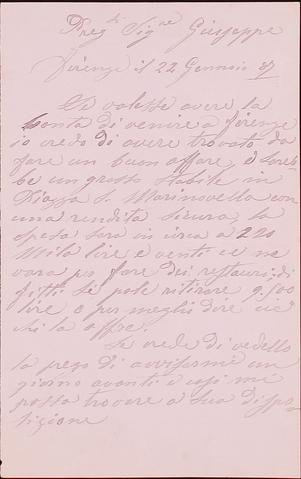 Preg. Sig.re Giuseppe
Firenze il 22 Gennaio 87
Se volesse avere la
bonta di venire a firenze
io credo di avere trovato da
fare un buon affare, è sareb
be un grosso stabile in
Piazza S. Marinovella con
una rendita sicura, la
spesa sara in circa a 220
Mila lire e venti ce ne
vora per fare dei restauri, di
fitti si pole ritirare 9,500
lire o per meglio dire cie
chi la offre.
Se crede di vedello
la prego di avvisarmi un
giorno avanti e così mi
possa trovare a Sua dispo
sizione